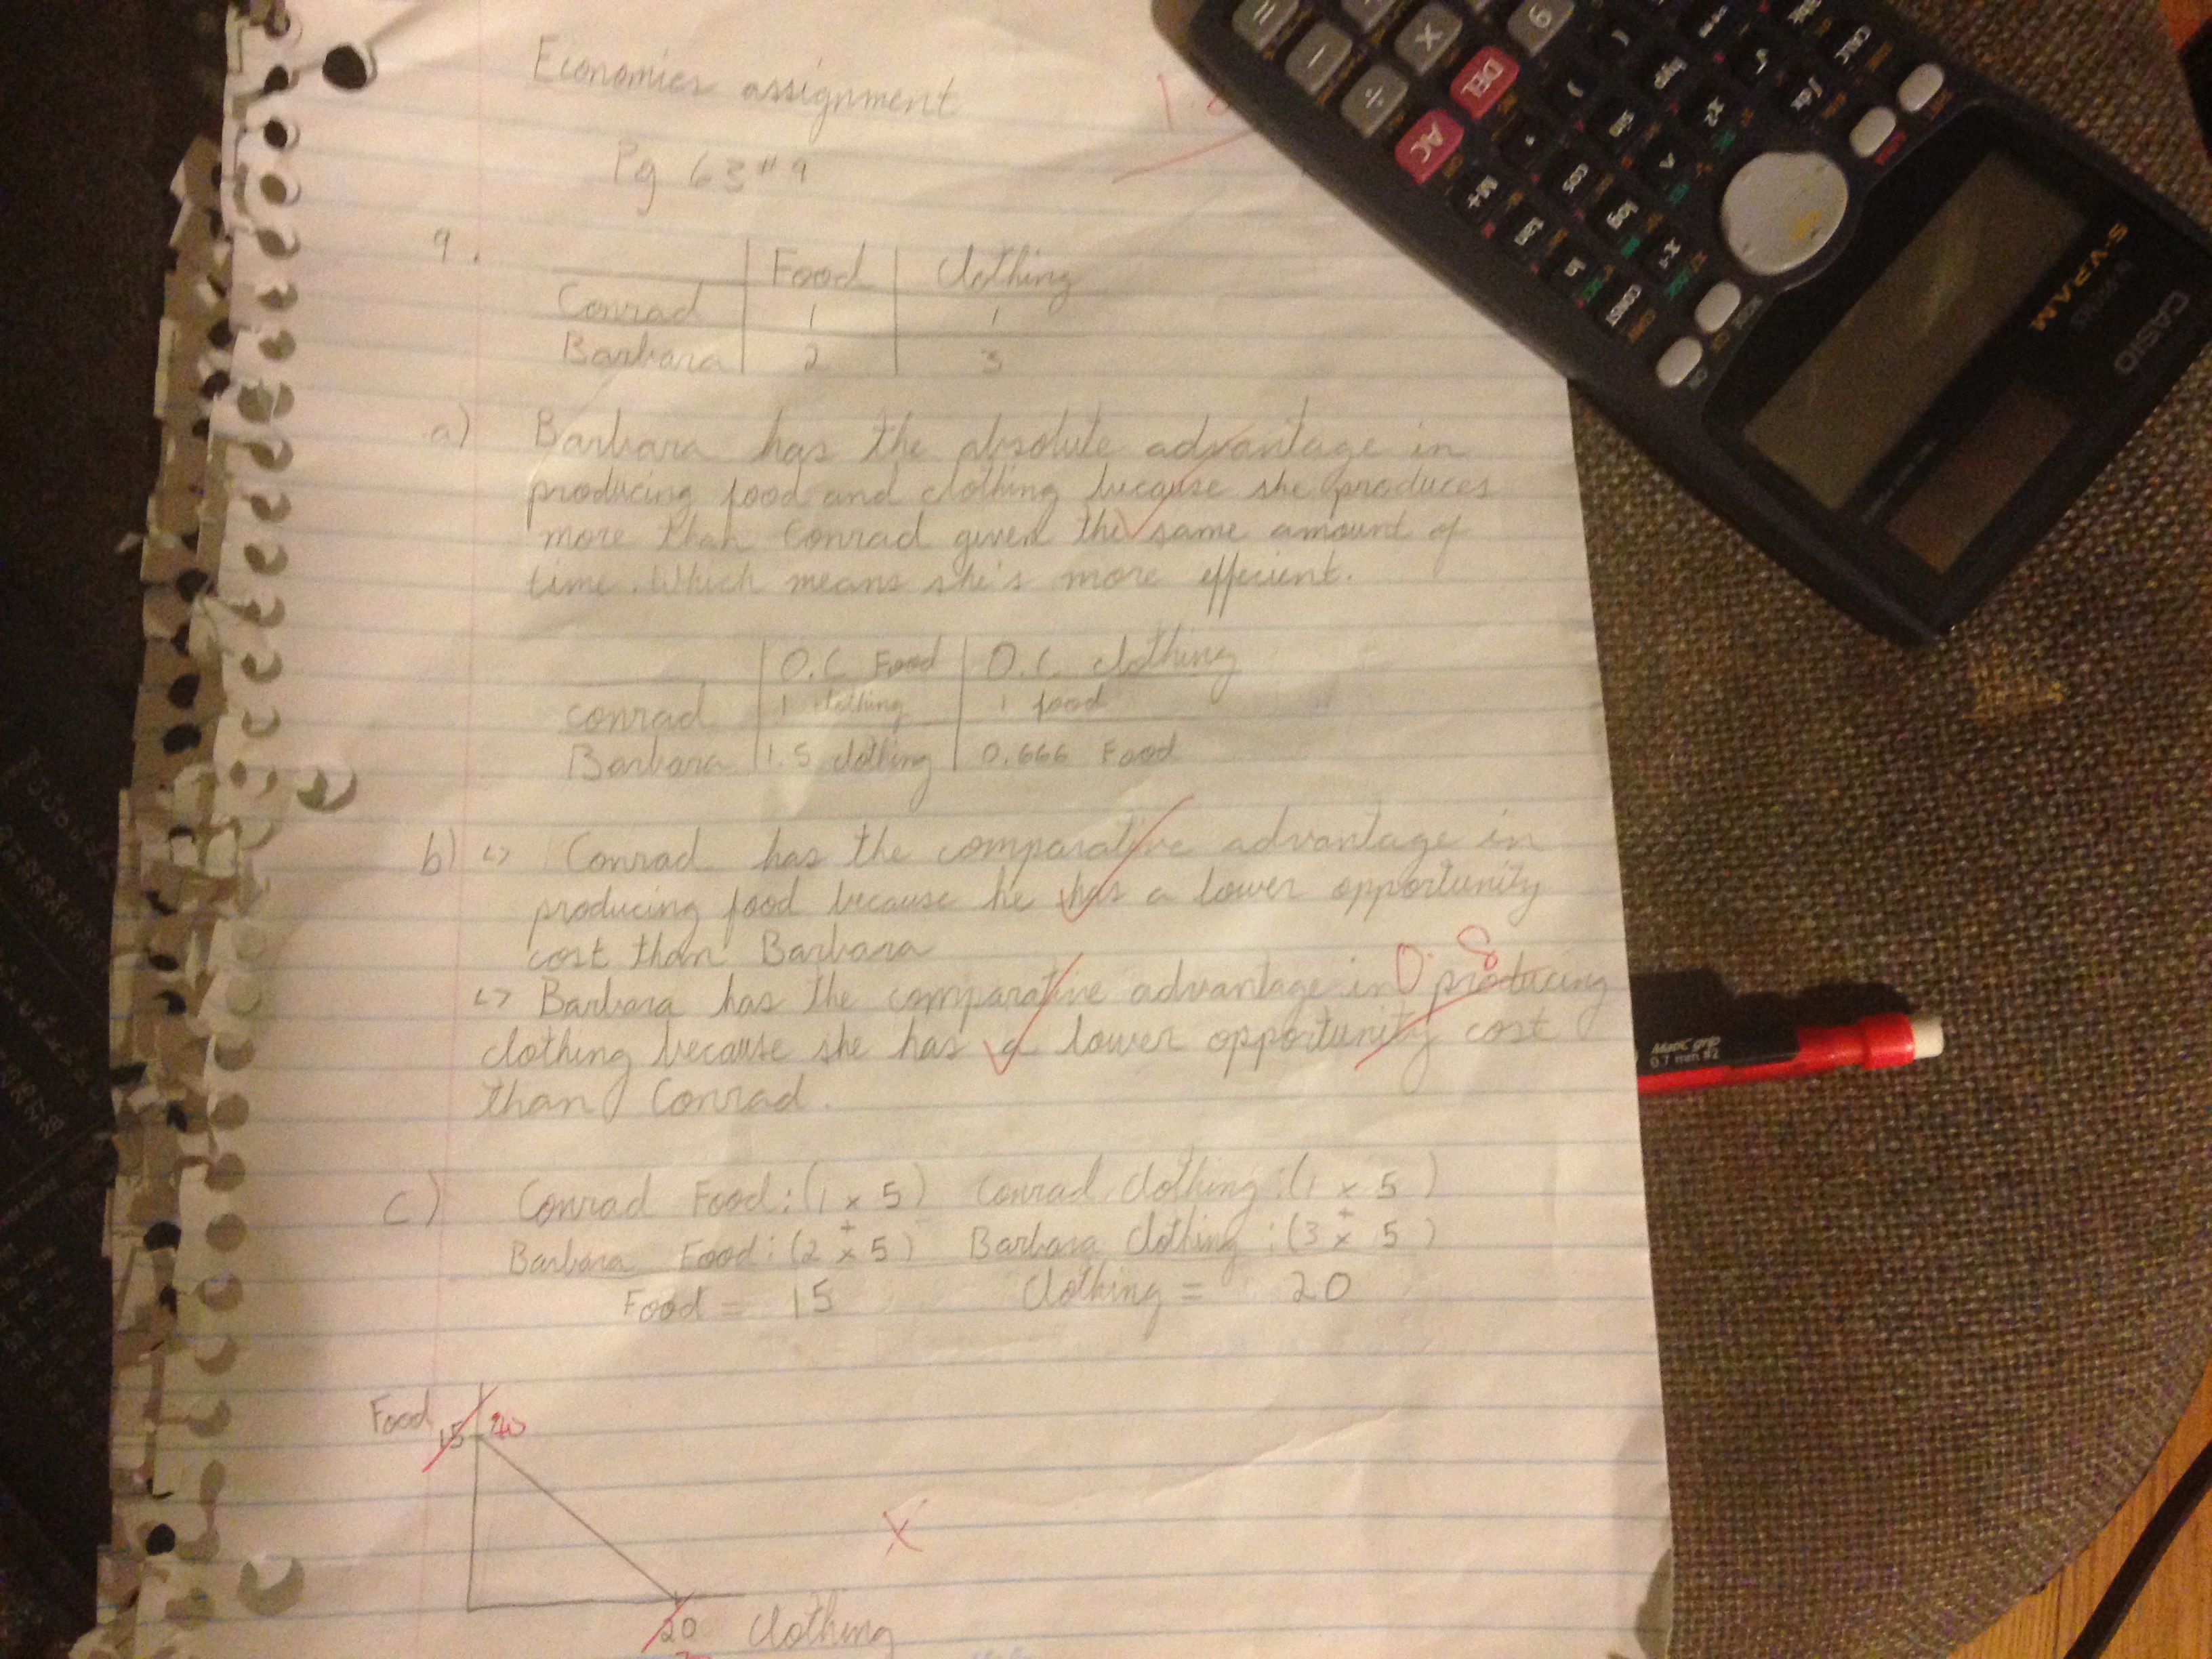 Economics assignment
Pg 63 # 9
9.
Food
Clothing
Conrad 1 1
Barbara 2 3
a) Barbara has the absolute advantage in
producing food and clothing because she produces
more than Conrad given the same amount of
time. Which means she's more effecient.
O.C Food O.C. clothing
conrad 1 clothing 1 food
Barbara 1.5 clothing 0.666 Food
b) Conrad has the comparative advantage in
producing food because he has a lower opportunity
cost than Barbara
0.8
Barbara has the comparative advantage in producing
clothing because she has a lower opportunity cost
than Conrad.
c) Conrad Food: (1 x 5) Conrad clothing: (1 x 5)
+ +
Barbara Food: (2 x 5) Barbara clothing: (3 x 5)
Food = 15 Clothing = 20
Food
15
X
20 Clothing
CASIO
S-V.P.A.M.
ON
CALC
∫dx
CONST
hyp
sin
cos
tan
log
ln
M+
DEL
AC
9
×
÷
-
=
MatiC grip
0.7 mm #2